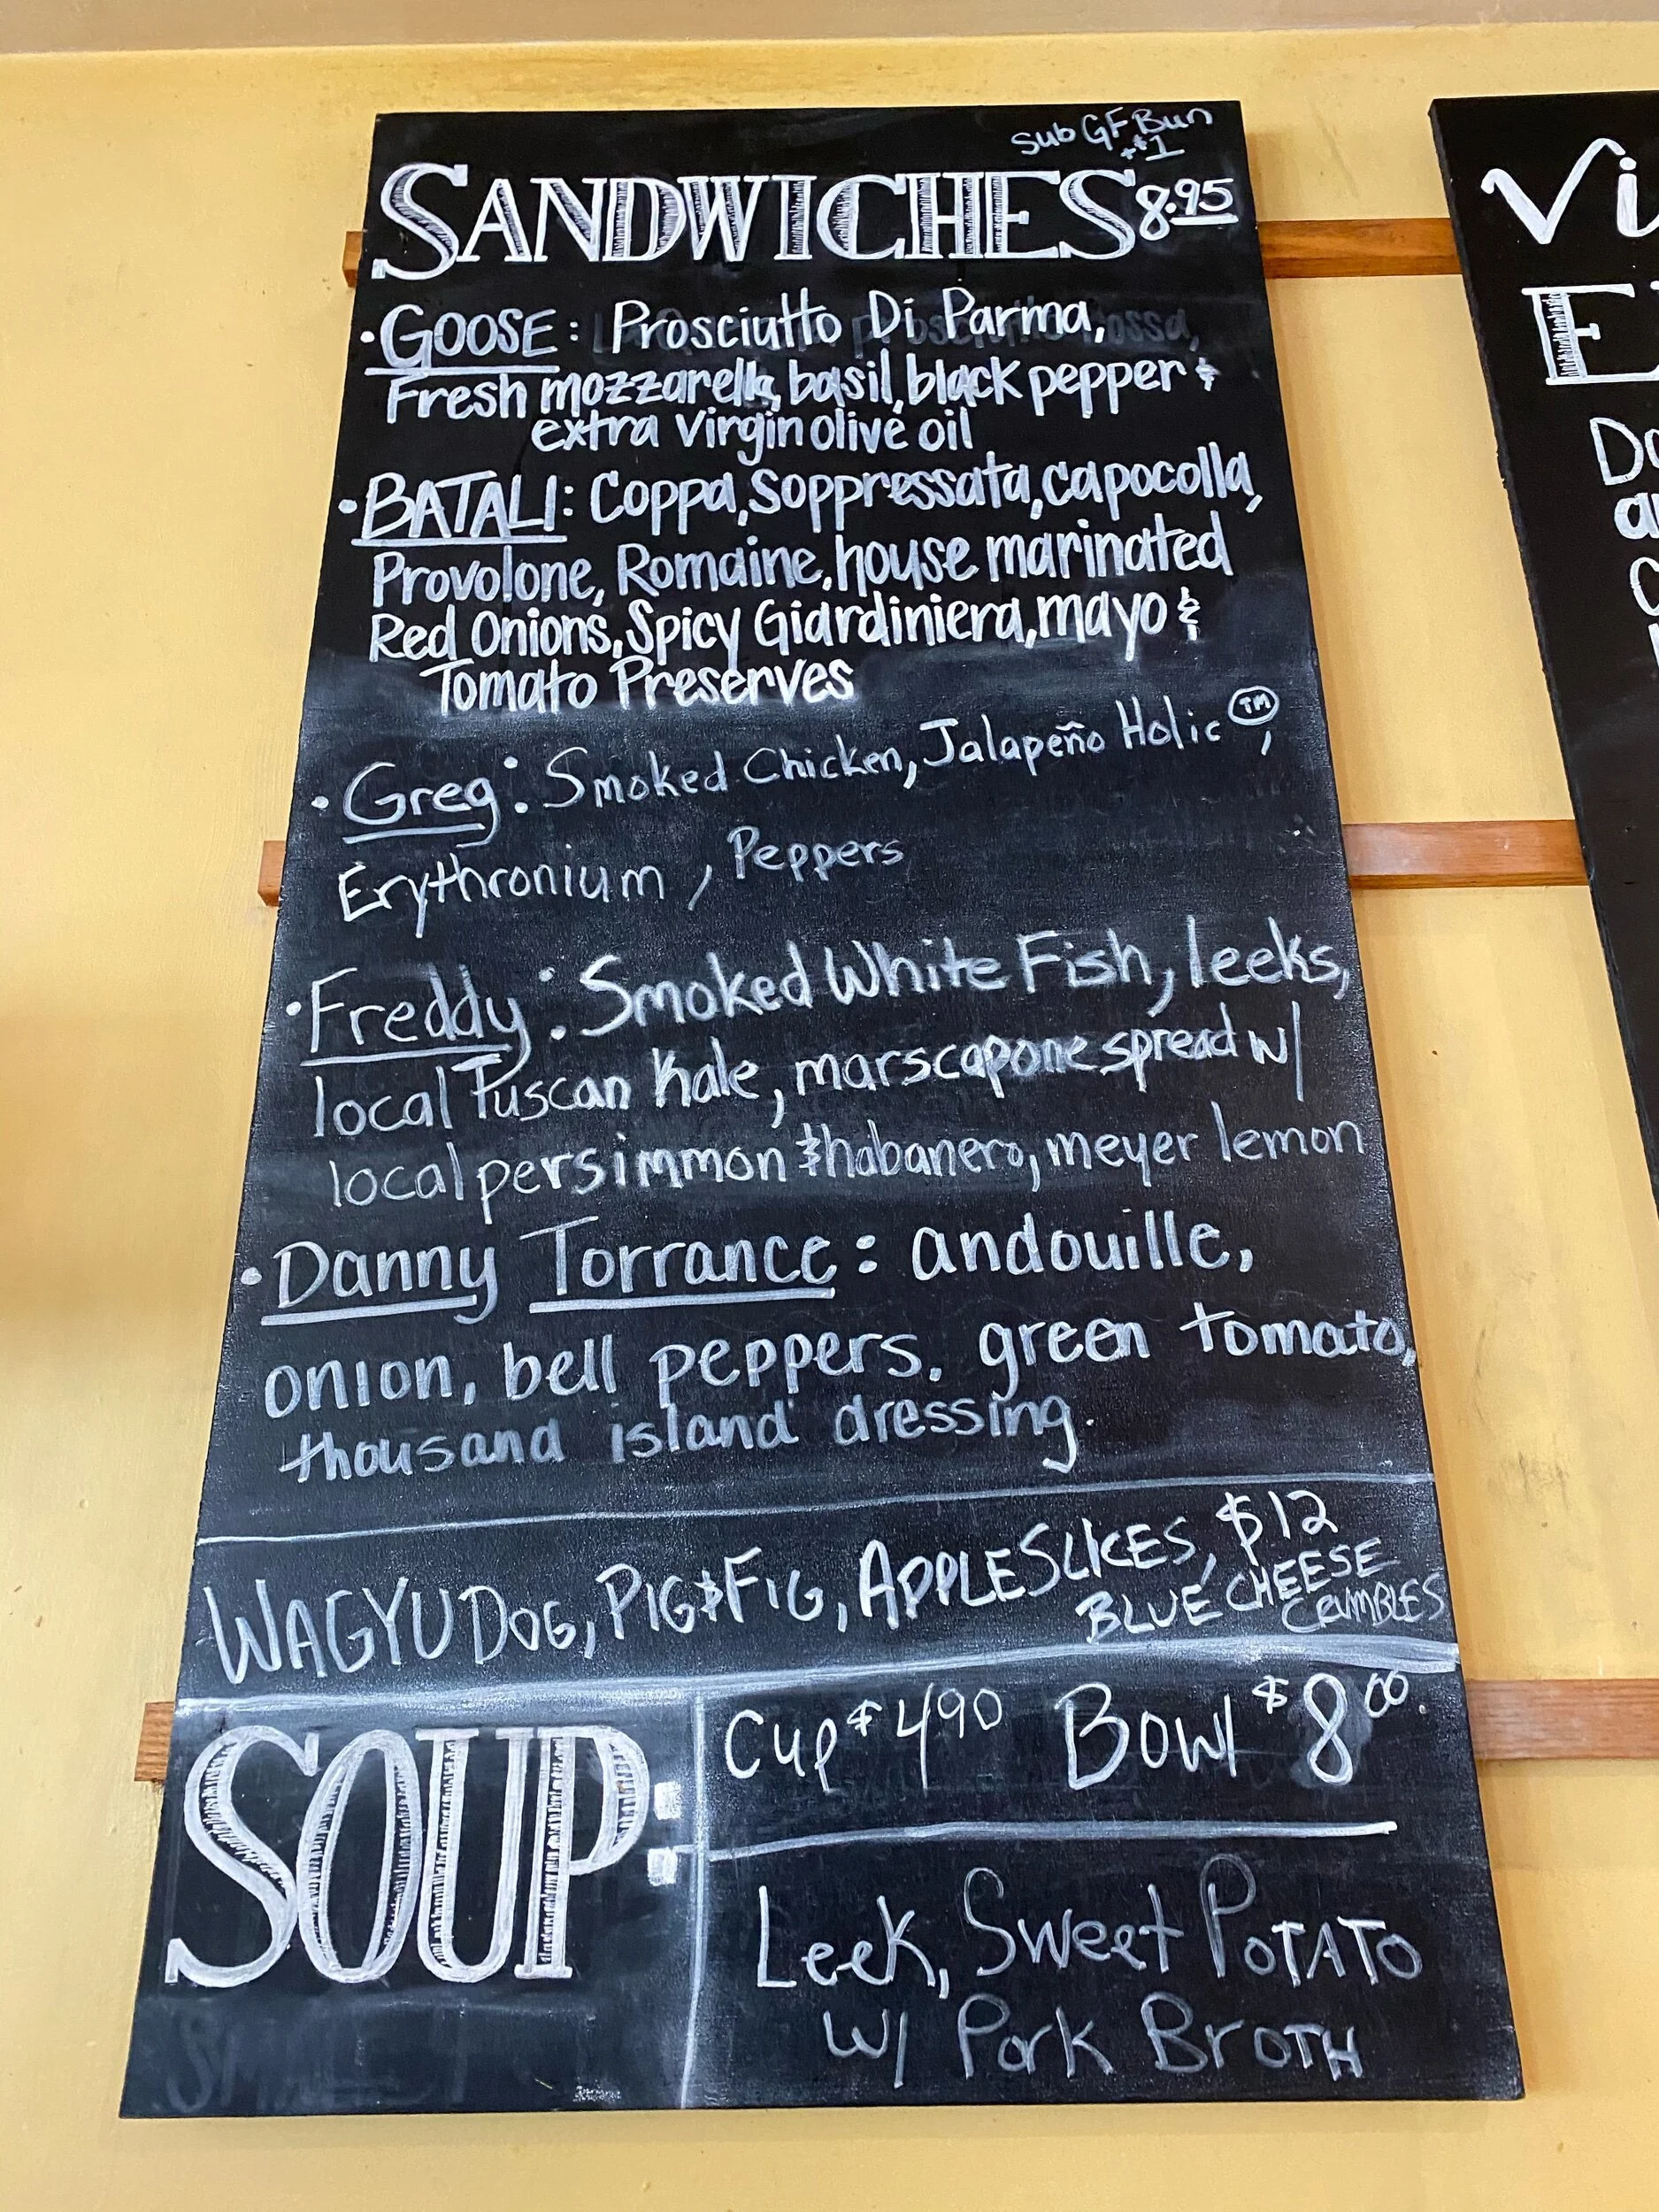 Sub GF Bun
+$1
SANDWICHES 8.95
• GOOSE: Prosciutto Di Parma,
Fresh mozzarella, basil, black pepper &
extra virgin olive oil
• BATALI: Coppa, Soppressata, capocolla,
Provolone, Romaine, house marinated
Red Onions, Spicy Giardiniera, mayo &
Tomato Preserves
• Greg: Smoked Chicken, Jalapeño Holic™,
Erythronium, Peppers
• Freddy: Smoked White Fish, leeks,
local Tuscan Kale, marscapone spread w/
local persimmon & habanero, meyer lemon
• Danny Torrance: andouille,
onion, bell peppers, green tomato,
thousand island dressing.
WAGYU DOG, PIG & FIG, APPLE SLICES, $12
BLUE CHEESE
CRUMBLES
SOUP:
Cup $4.90 Bowl $8.00
Leek, Sweet Potato
w/ Pork Broth
Vi
E